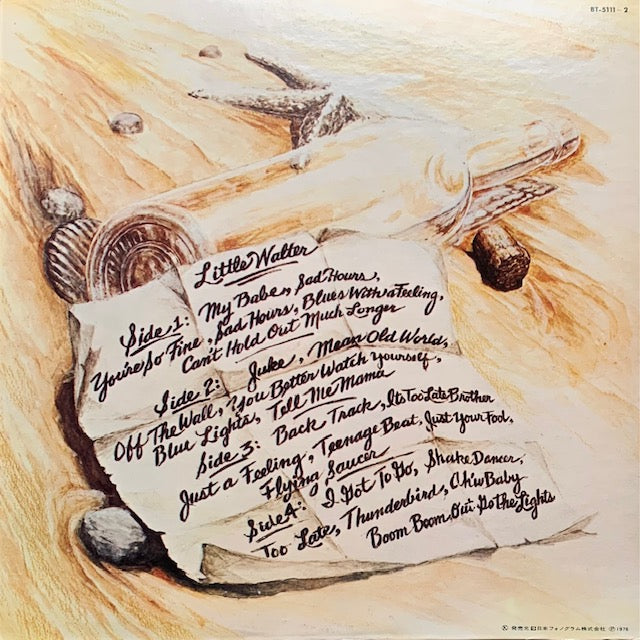 BT-5111~2
Little Walter
Side 1: My Babe, Sad Hours,
You're So Fine, Sad Hours, Blues With a Feeling,
Can't Hold Out Much Longer
Side 2: Juke, Mean Old World,
Off The Wall, You Better Watch Yourself,
Blue Lights, Tell Me Mama
Side 3: Back Track, Its Too Late Brother
Just a Feeling, Teenage Beat, Just Your Fool,
Flying Saucer
Side 4: I Got To Go, Shake Dancer,
Too Late, Thunderbird, Ah'w Baby
Boom Boom, Out Go the Lights
発売元 日本フォノグラム株式会社 Ⓟ1976